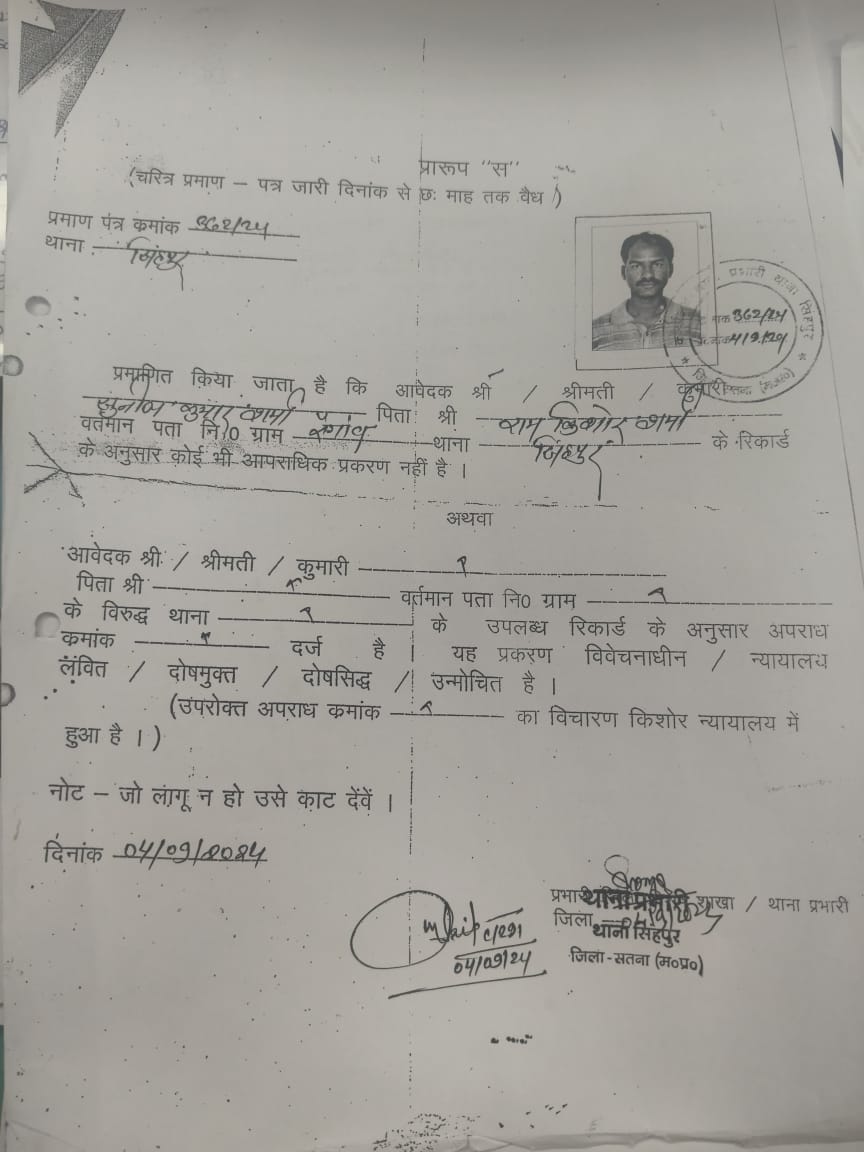 प्रारूप "स"
(चरित्र प्रमाण – पत्र जारी दिनांक से छः माह तक वैध)
प्रमाण पंत्र कमांक 362/24
थाना सिंहपुर
प्रभारी थाना सिंहपुर
362/24
4/9/24
प्रमाणित किया जाता है कि आवेदक श्री / श्रीमती / कुमारी
कुमार शर्मा पिता श्री राम किशोर शर्मा
वर्तमान पता नि0 ग्राम थाना सिंहपुर के रिकार्ड
के अनुसार कोई भी आपराधिक प्रकरण नहीं है ।
अथवा
आवेदक श्री / श्रीमती / कुमारी
पिता श्री वर्तमान पता नि0 ग्राम
के विरुद्ध थाना के उपलब्ध रिकार्ड के अनुसार अपराध
कमांक दर्ज है । यह प्रकरण विवेचनाधीन / न्यायालय
लंवित / दोषमुक्त / दोषसिद्ध / उन्मोचित है ।
(उपरोक्त अपराध कमांक का विचारण किशोर न्यायालय में
हुआ है । )
नोट – जो लागू न हो उसे काट देंवें ।
दिनांक 04/09/2024
प्रभारी शाखा / थाना प्रभारी
थाना प्रभारी
जिला
थाना सिंहपुर
जिला-सतना (म०प्र०)
04/09/24